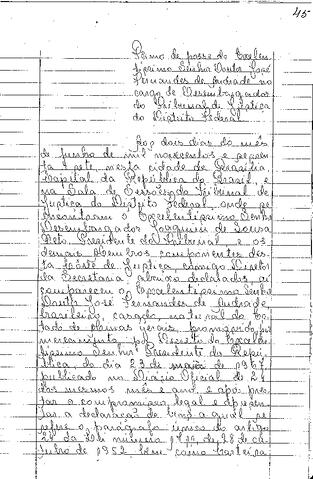 45
Têrmo de posse do Excelen
tíssimo Senhor Doutor José
Fernandes de Andrade no
cargo de Desembargador
do Tribunal de Justiça
do Distrito Federal
Aos dois dias do mês
de junho de mil novecentos e sessen
ta e sete, nesta cidade de Brasília
Capital da República do Brasil, e
na Sala de Sessões do Tribunal de
Justiça do Distrito Federal, onde se
encontravam o Excelentíssimo Senhor
Desembargador Joaquim de Sousa
Neto, Presidente do Tribunal e os
demais membros, componentes des
ta Côrte de Justiça, comigo Diretor
da Secretaria, abaixo declarados, aí
compareceu o Excelentíssimo Senhor
Doutor José Fernandes de Andrade
brasileiro, casado, natural do Es
tado de Minas Gerais, promovido, por
merecimento, por Decreto do Excelen
tíssimo Senhor Presidente da Repú
blica, do dia 23 de maio de 1967,
publicado no Diário Oficial de 24
dos mesmos mês e ano, e após pres
tar o compromisso legal e apresen
tar a declaração de bens a qual se
refere o parágrafo único do artigo
24 da Lei número 1711, de 28 de ou
tubro de 1952, bem como carteira